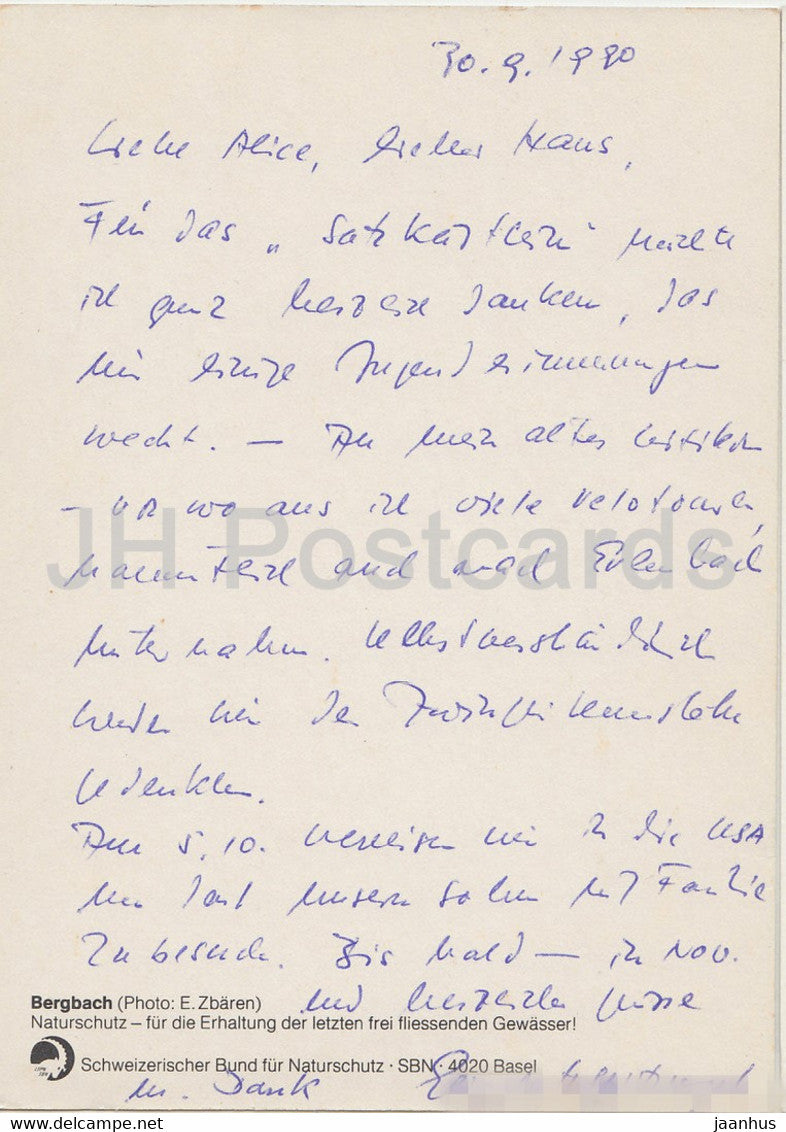 30.9.1990
Liebe Alice, lieber Hans,
Für das „Satzkärtlein“ möchte
ich ganz herzlich danken, das
mir einige Jugenderinnerungen
weckt. — An mein altes
– von wo aus ich viele Velotouren,
namentlich auch nach Erlenbach
unternahm. Selbstverständlich
werden wir der
gedenken.
Am 5.10. verreisen wir in die USA
um dort unsern Sohn mit Familie
zu besuchen. Bis bald — im Nov.
und herzliche Grüsse
Bergbach (Photo: E. Zbären)
Naturschutz – für die Erhaltung der letzten frei fliessenden Gewässer!
Schweizerischer Bund für Naturschutz · SBN · 4020 Basel
m. Dank
JH Postcards
www.delcampe.net
jaanhus